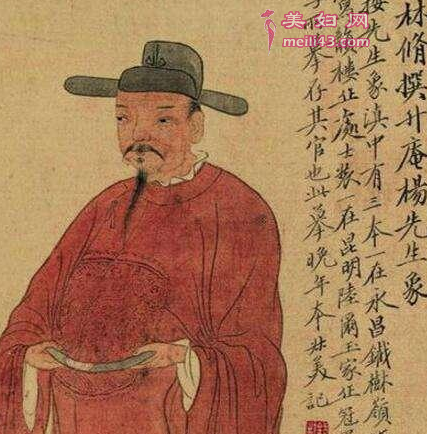 美妇网
meili43.com
林脩撰升庵楊先生象
按先生象滇中有三本一在永昌鐵樹嶺
嶺樓止處士裝一在昆明陸爾王家止冠
摹仔其官也此摹晚年本壯美記